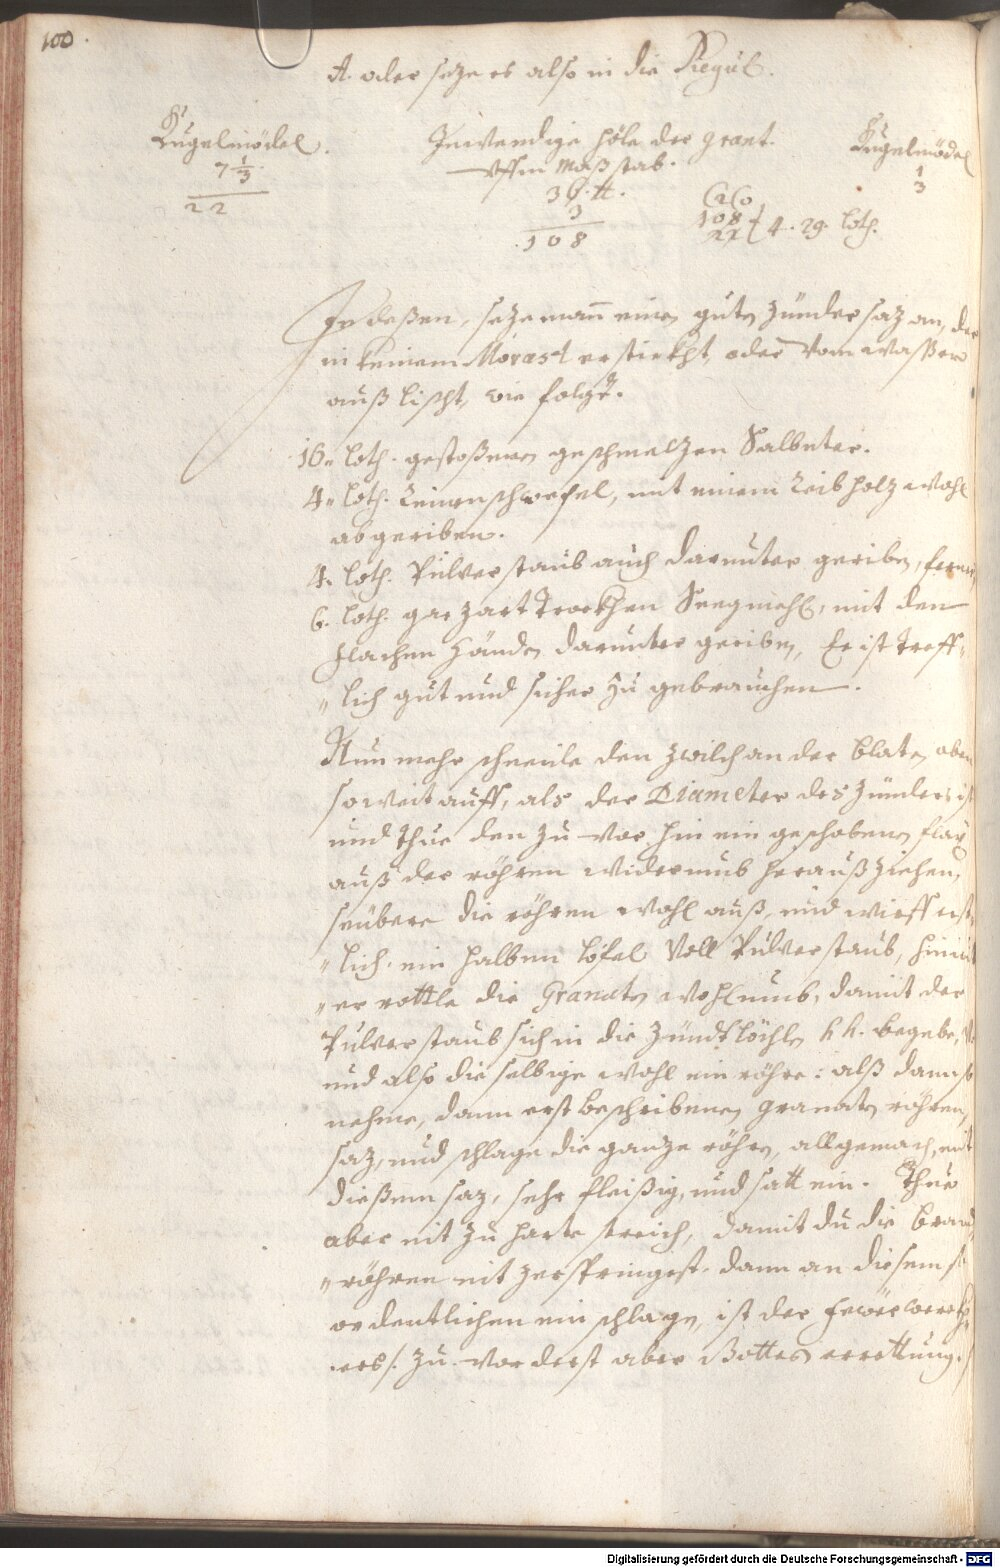 100.
A. oder seze es also in die Regul.
Kugelmödel.
7 1/3
22
Inwendige Höle der granat.
Vffm Maßstab.
36. ℔.
3
108
Kugelmödel
1
3
108
22 { 4. 29. loth.
Indeßen, seze mann einen guten Zünder saz an, der
in keinem Morast erstickht, oder vom waßer
außlischt, wie folgt.
16. loth. gestoßenen geschmelzen Salbeter.
4. loth. Leimenschwefel, mit einem Reibholz wohl
abgeriben.
4. loth. Pulverstaub auch darunter geriben, ferner
6. loth. gar zart trockhen Seegmehl, mit den
flachen Händen darunter geriben, Er ist treff-
lich gut und sicher zu gebrauchen.
Nunmehr schneide den zwilch an der blaten, oben
soweit auff, als der Diameter des Zünders ist
und thue den zuvor hinein geschobenen flax
auß der röhren widerumb heraußziehen,
seubere die röhren wohl auß, und wirff erst-
lich ein halben löfel voll Pulverstaub, hinein
er rottle die Granaten wohl umb, damit der
Pulverstaub sich in die Zündtlöchle hh. begebe,
und also dieselbige wohl ein röhre: alß dann so
nehme, dann erst beschribenen granaten röhren
saz, und schlage die ganze röhre, allgemach, mit
dießem saz, sehr fleißig, und satt ein. Thue
aber nit zu harte streich, damit du die brand-
röhren nit zerspringest. dann an diesem
ordentlichen einschlagen, ist des fewrwerckh-
ers /. zu vorderst aber Gottes errettung. /
Digitalisierung gefördert durch die Deutsche Forschungsgemeinschaft - DFG